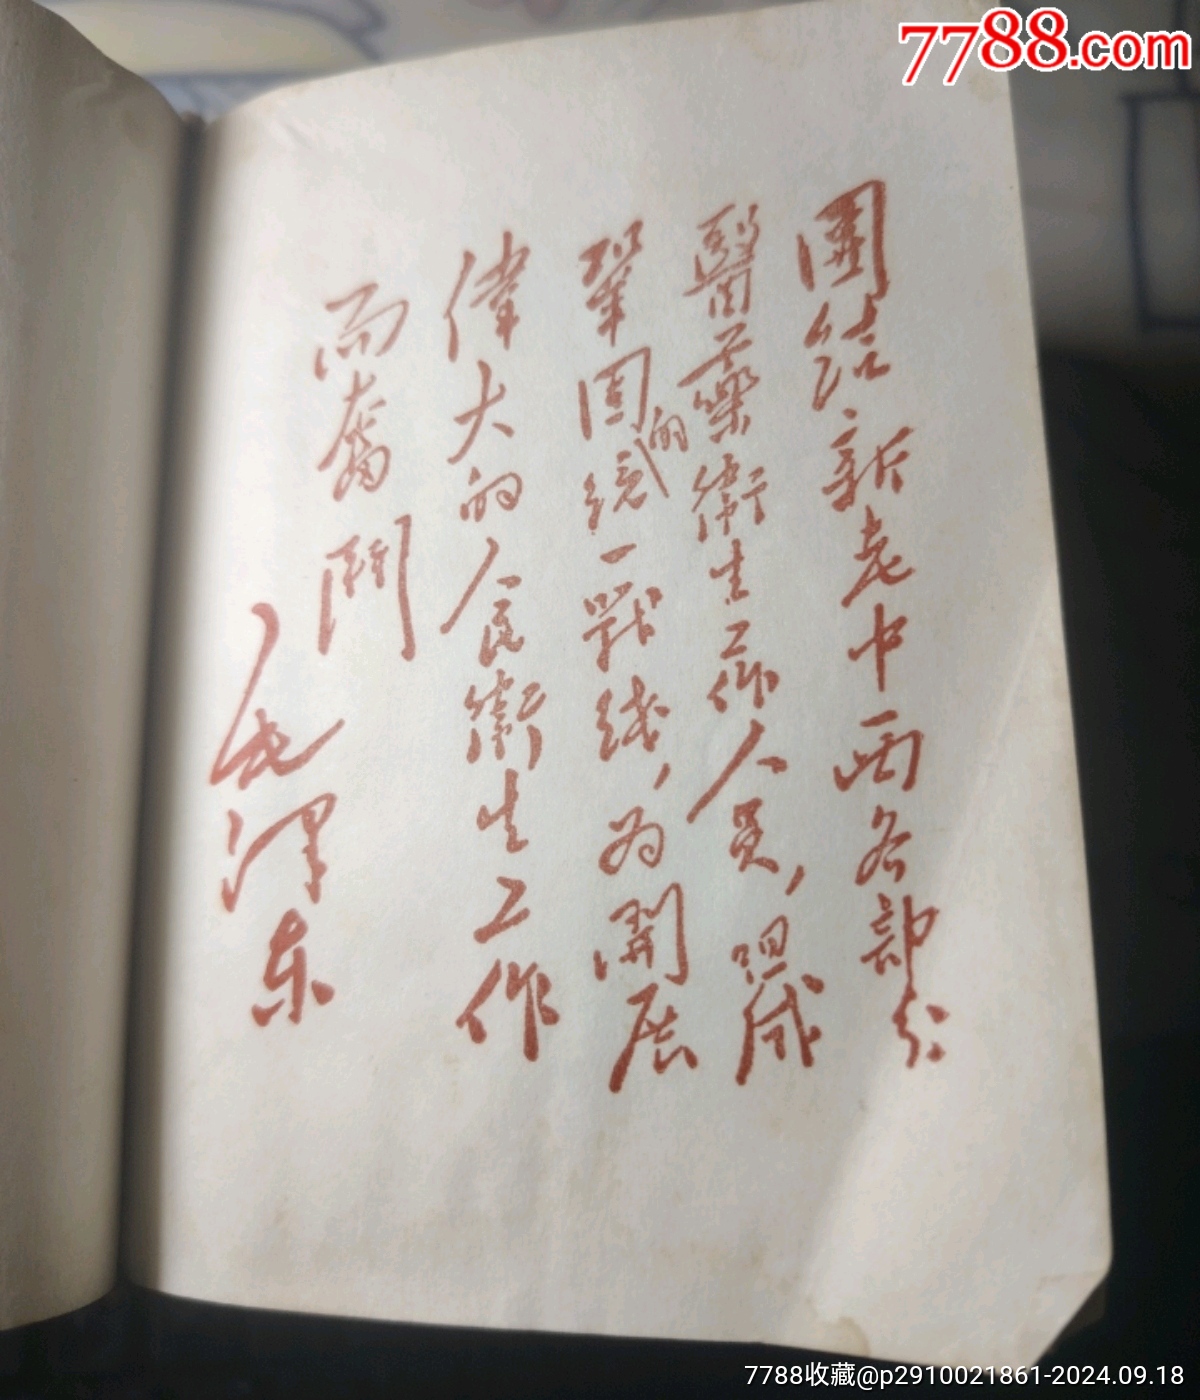 7788.com
團结新老中西各部分
醫藥衛生工作人員，组成
鞏固的统一戰线，为開展
偉大的人民衛生工作
而奮鬥
毛泽东
7788收藏@p2910021861-2024.09.18